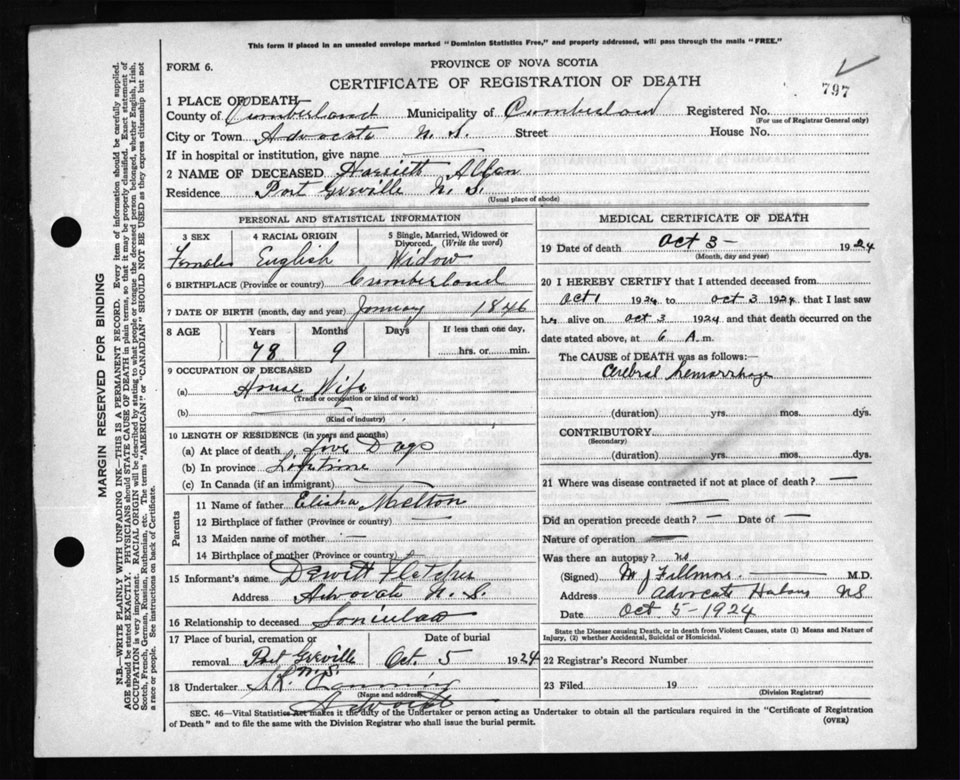 This form if placed in an unsealed envelope marked "Dominion Statistics Free," and properly addressed, will pass through the mails "FREE."
FORM 6.
PROVINCE OF NOVA SCOTIA
CERTIFICATE OF REGISTRATION OF DEATH
797
1 PLACE OF DEATH
County of Cumberland Municipality of Cumberland Registered No.
(For use of Registrar General only)
City or Town Advocate N. S. Street House No.
If in hospital or institution, give name
2 NAME OF DECEASED Harriett
Residence Port Greville N. S.
(Usual place of abode)
PERSONAL AND STATISTICAL INFORMATION
3 SEX 4 RACIAL ORIGIN 5 Single, Married, Widowed or Divorced. (Write the word)
Female English Widow
6 BIRTHPLACE (Province or country) Cumberland
7 DATE OF BIRTH (month, day and year) January 1846
8 AGE Years Months Days If less than one day,
78 9 hrs. or min.
9 OCCUPATION OF DECEASED
(a) House Wife
(Trade or occupation or kind of work)
(b)
(Kind of industry)
10 LENGTH OF RESIDENCE (in years and months)
(a) At place of death Days
(b) In province Lifetime
(c) In Canada (if an immigrant)
Parents
11 Name of father Elisha
12 Birthplace of father (Province or country) —
13 Maiden name of mother —
14 Birthplace of mother (Province or country)
15 Informant's name Dewitt Fletcher
Address Advocate N. S.
16 Relationship to deceased Soninlaw
17 Place of burial, cremation or removal Port Greville Date of burial Oct. 5 1924
18 Undertaker
(Name and address)
Advocate
MEDICAL CERTIFICATE OF DEATH
19 Date of death Oct 3 — 1924
(Month, day and year)
20 I HEREBY CERTIFY that I attended deceased from
Oct 1 1924 to Oct 3 1924 that I last saw
her alive on Oct 3 1924 and that death occurred on the
date stated above, at 6 A.m.
The CAUSE of DEATH was as follows:—
Cerebral hemorrhage
(duration) yrs. mos. dys.
CONTRIBUTORY
(Secondary)
(duration) yrs. mos. dys.
21 Where was disease contracted if not at place of death? —
Did an operation precede death? — Date of —
Nature of operation —
Was there an autopsy? no
(Signed) M J Fillmore M.D.
Address Advocate Harbour NS
Date Oct 5 - 1924
State the Disease causing Death, or in death from Violent Causes, state (1) Means and Nature of Injury, (2) whether Accidental, Suicidal or Homicidal.
22 Registrar's Record Number
23 Filed 19
(Division Registrar)
SEC. 46—Vital Statistics Act makes it the duty of the Undertaker or person acting as Undertaker to obtain all the particulars required in the "Certificate of Registration
of Death" and to file the same with the Division Registrar who shall issue the burial permit.
(OVER)
MARGIN RESERVED FOR BINDING
N.B.—WRITE PLAINLY WITH UNFADING INK—THIS IS A PERMANENT RECORD. Every item of information should be carefully supplied.
AGE should be stated EXACTLY. PHYSICIANS should STATE CAUSE OF DEATH in plain terms, so that it may be properly classified. Exact statement of
OCCUPATION is very important. RACIAL ORIGIN will be described by stating to what people or tongue the deceased person belonged, whether English, Irish,
Scotch, French, German, Russian, Ruthenian, etc. The terms "AMERICAN" or "CANADIAN" SHOULD NOT BE USED as they express citizenship but not
a race or people. See instructions on back of Certificate.